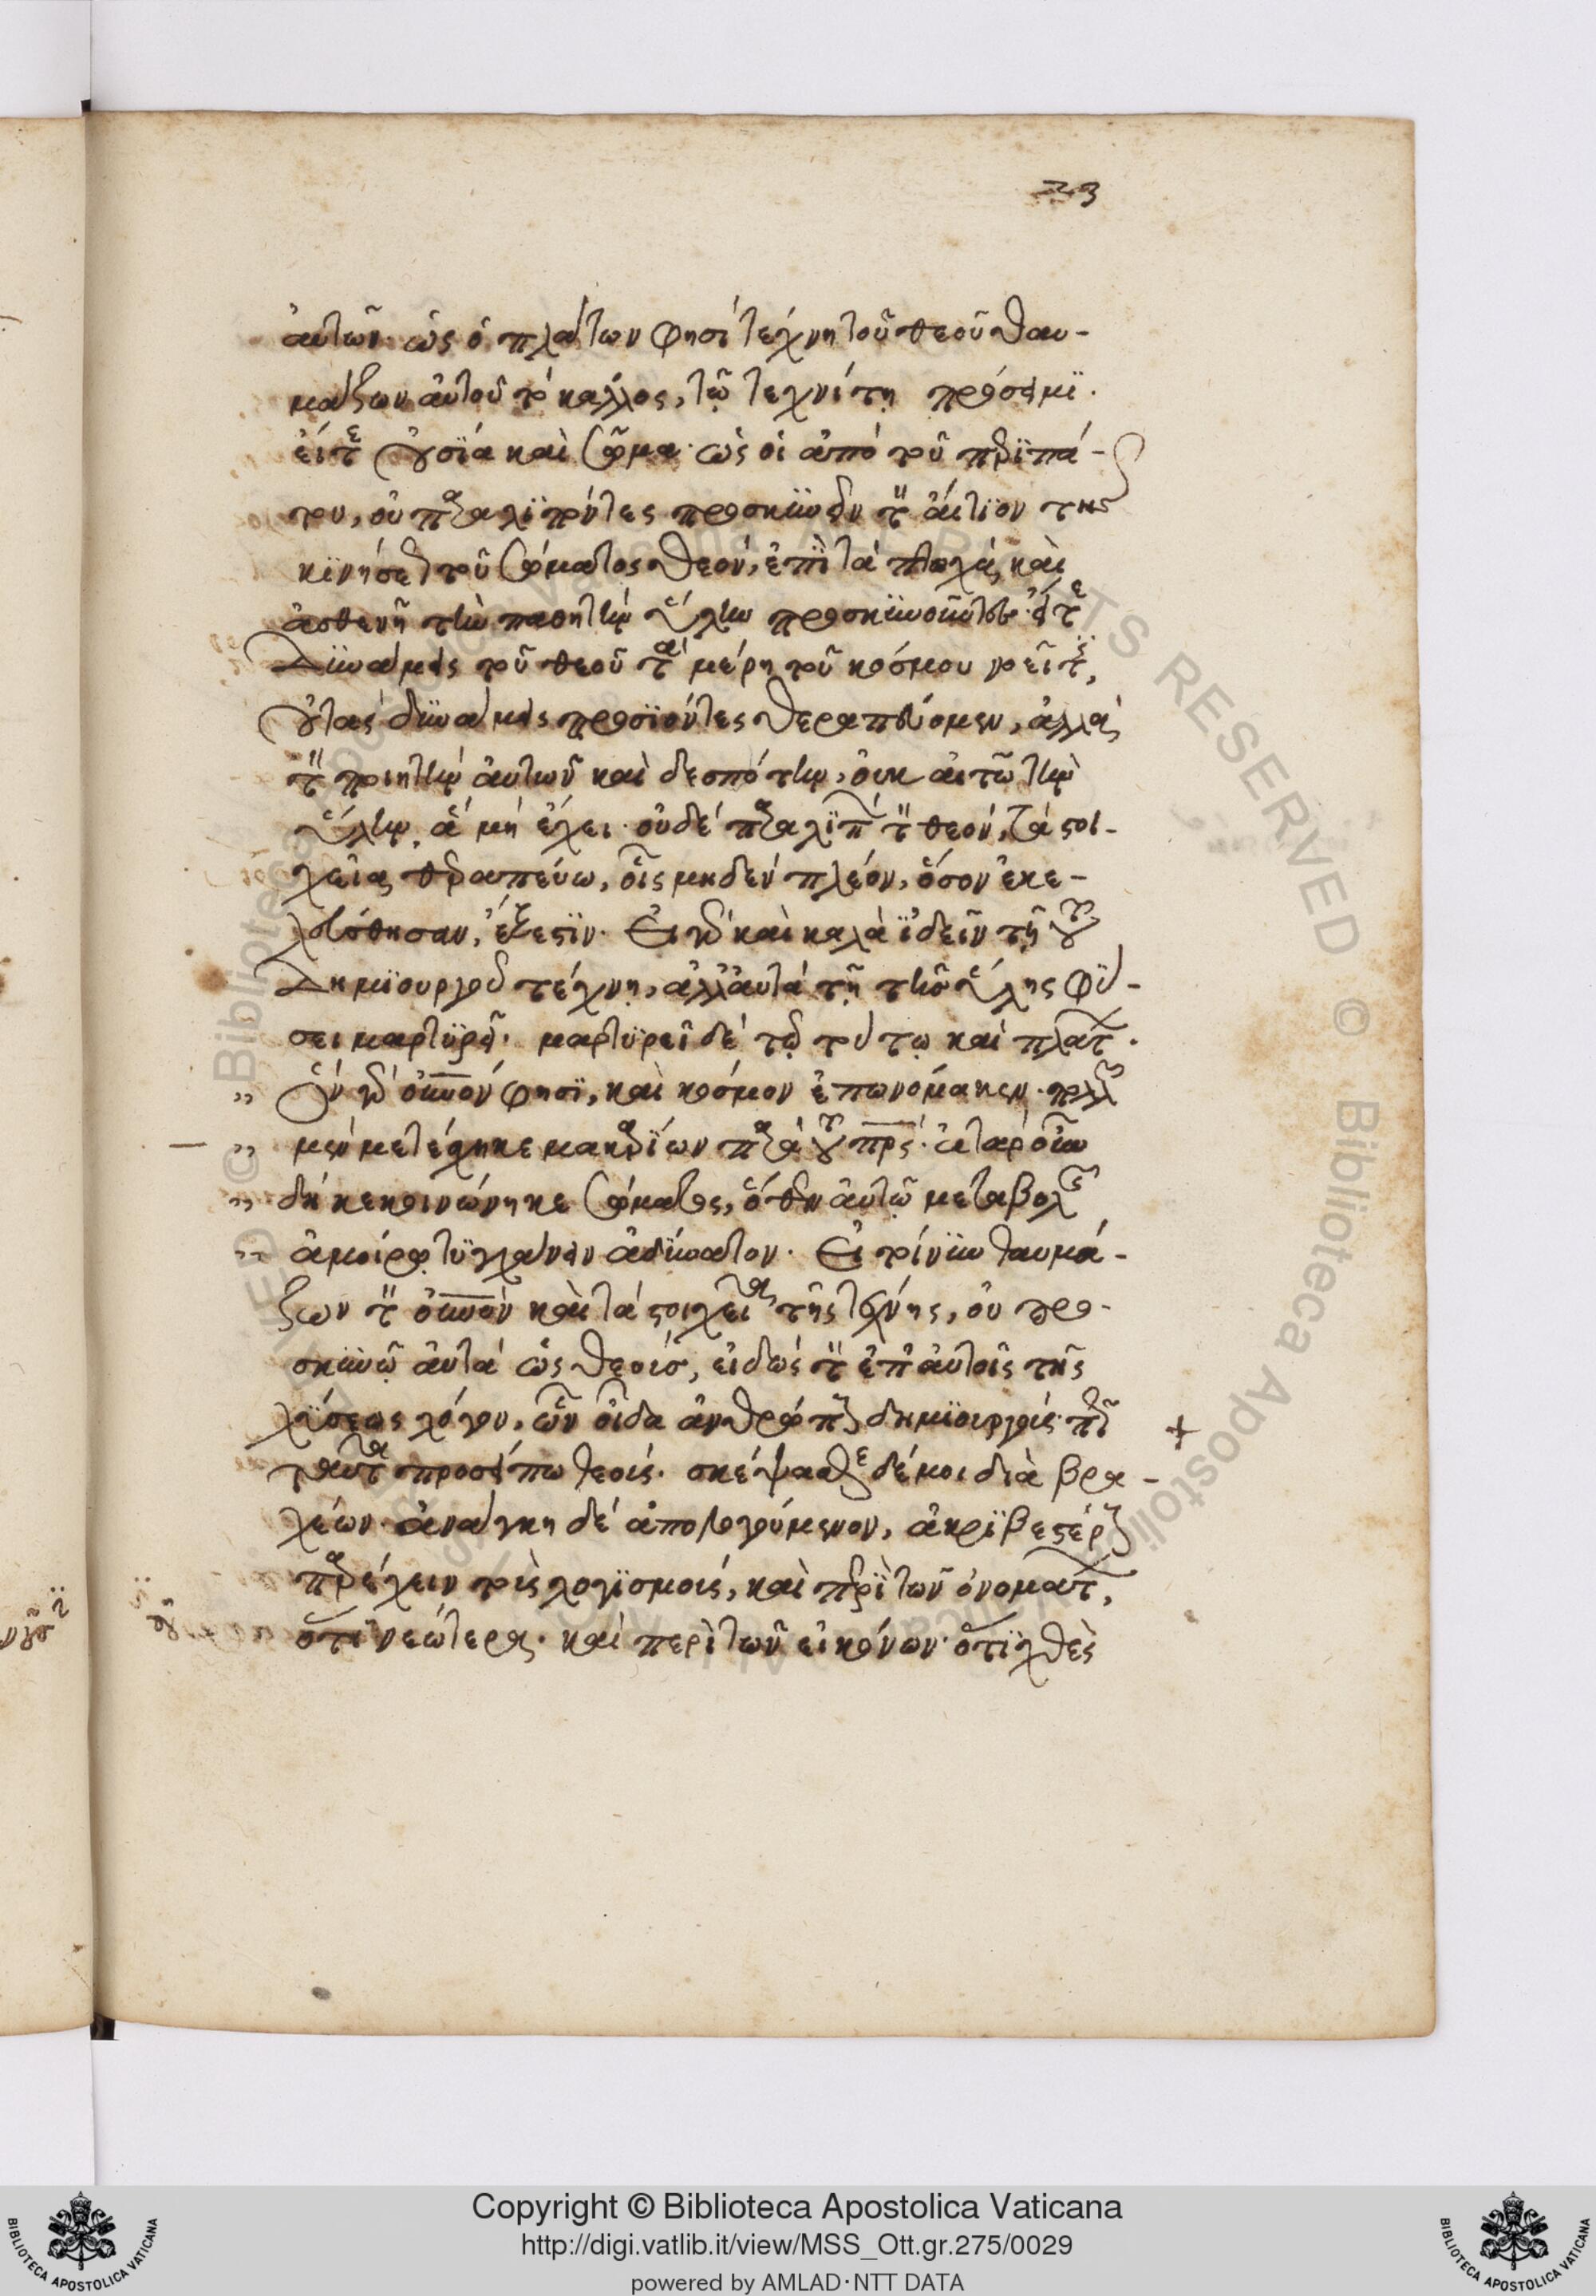 23
αὐτῶν· ὡς ὁ πλάτων φησὶ τέχνη τοῦ θεοῦ θαυ-
μάζων αὐτοῦ τὸ κάλλος, τῷ τεχνίτῃ πρόσειμι.
εἴτε οὐσία καὶ σῶμα· ὡς οἱ ἀπὸ τοῦ περιπά-
του, οὐ παραλιπόντες προσκυνεῖν τὸν αἴτιον τῆς
κινήσεως τοῦ σώματος θεὸν, ἐπὶ τὰ πτωχὰ καὶ
ἀσθενῆ τὴν παθητὴν ὕλην προσκυνοῦντες· εἴτε
Δυνάμεις τοῦ θεοῦ τὰ μέρη τοῦ κόσμου νοεῖ τις,
οὐ τὰς δυνάμεις προσιόντες θεραπεύομεν, ἀλλὰ
τὸν ποιητὴν αὐτῶν καὶ δεσπότην, οὐκ αἰτῶ τὴν
ὕλην, ἃ μὴ ἔχει· οὐδὲ παραλιπὼν τὸν θεὸν, τὰ στοι-
χεῖα θεραπεύω, οἷς μηδὲν πλέον, ὅσον ἐκε-
λεύσθησαν, ἔξεστιν. Εἰ γὰρ καὶ καλὰ ἰδεῖν τῇ τοῦ
Δημιουργοῦ τέχνῃ, ἀλλ' αὐτὰ τῇ τῆς ὕλης φύ-
σει μαρτυρεῖ. μαρτυρεῖ δὲ τῷ τούτῳ καὶ πλάτων.
" Ὃν γὰρ οὐρανόν φησι, καὶ κόσμον ἐπωνόμακεν· πολλῶν
" μὲν μετέσχηκε μακαρίων παρὰ τοῦ πατρός· ἀτὰρ οὖν
" δὴ κεκοινώνηκε σώματος, ὅθεν αὐτῷ μεταβολῆς
" ἀμοίρῳ τυγχάνειν ἀδύνατον. Εἰ τοίνυν θαυμά-
ζων τὸν οὐρανὸν καὶ τὰ στοιχεῖα τῆς τέχνης, οὐ προ-
σκυνῶ αὐτὰ ὡς θεοὺς, εἰδὼς τὸν ἐπ' αὐτοῖς τῆς
λύσεως λόγον, ὧν οἶδα ἀνθρώπους δημιουργοὺς· πῶς
ταῦτα προσείπω θεούς. σκέψασθε δέ μοι διὰ βρα-
χέων· ἀνάγκη δὲ ἀπολογούμενον, ἀκριβεστέρους
παρέχειν τοὺς λογισμοὺς, καὶ περὶ τῶν ὀνομάτων,
ὅτι νεώτερα· καὶ περὶ τῶν εἰκόνων· ὅτι χθὲς
Copyright © Biblioteca Apostolica Vaticana
http://digi.vatlib.it/view/MSS_Ott.gr.275/0029
powered by AMLAD·NTT DATA